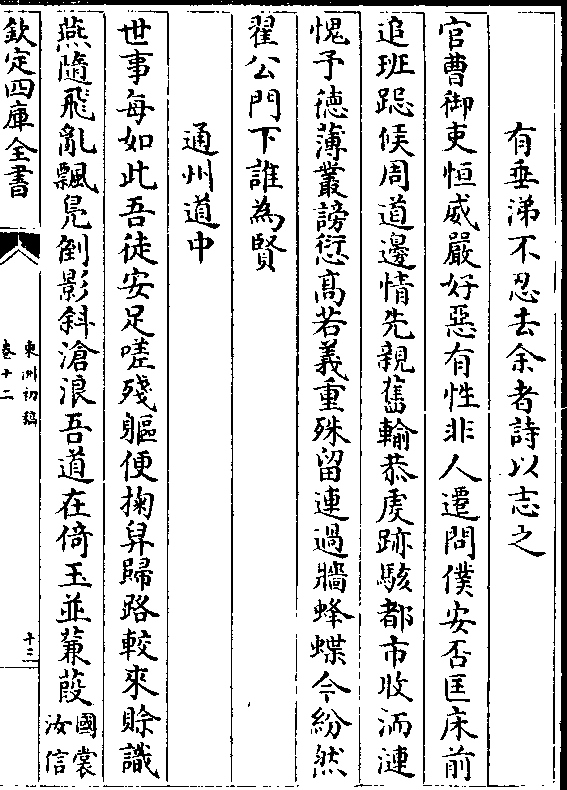 有垂涕不忍去余者詩以志之
官曹御吏恒威嚴好惡有性非人遷問僕安否匡床前
追班跽候周道邊情先親舊輸恭虔跡駭都市收洏漣
愧予徳薄叢謗愆髙若義重殊留連過牆蜂蝶今紛然
翟公門下誰為賢
通州道中
世事每如此吾徒安足嗟殘軀便掬舁歸路較來賒識
燕隨飛亂飄鳧倒影斜滄浪吾道在倚玉並蒹葭國裳
汝信
欽定四庫全書
東洲初稿
卷十二
十三